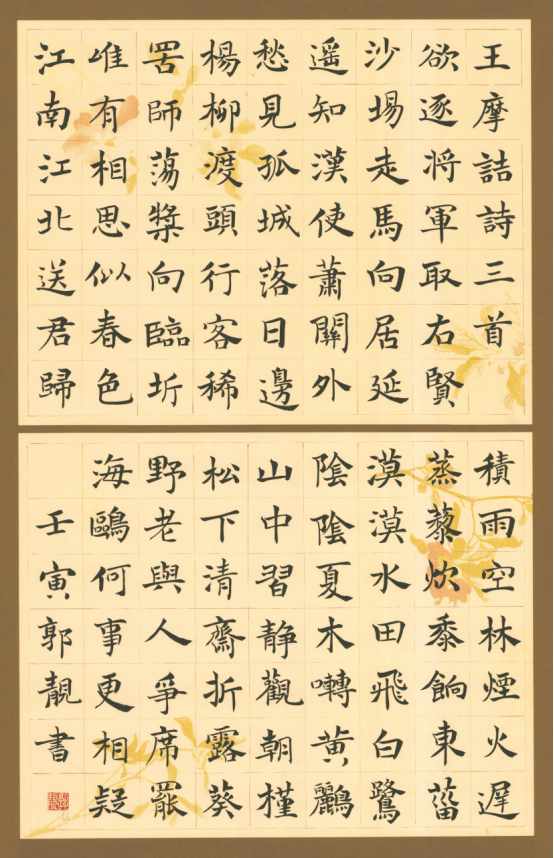 王摩詰詩三首
欲逐將軍取右賢
沙場走馬向居延
遥知漢使蕭關外
愁見孤城落日邊
楊柳渡頭行客稀
罟師蕩槳向臨圻
唯有相思似春色
江南江北送君歸
積雨空林煙火遲
蒸藜炊黍餉東菑
漠漠水田飛白鷺
陰陰夏木囀黃鸝
山中習靜觀朝槿
松下清齋折露葵
野老與人爭席罷
海鷗何事更相疑
壬寅郭靚書